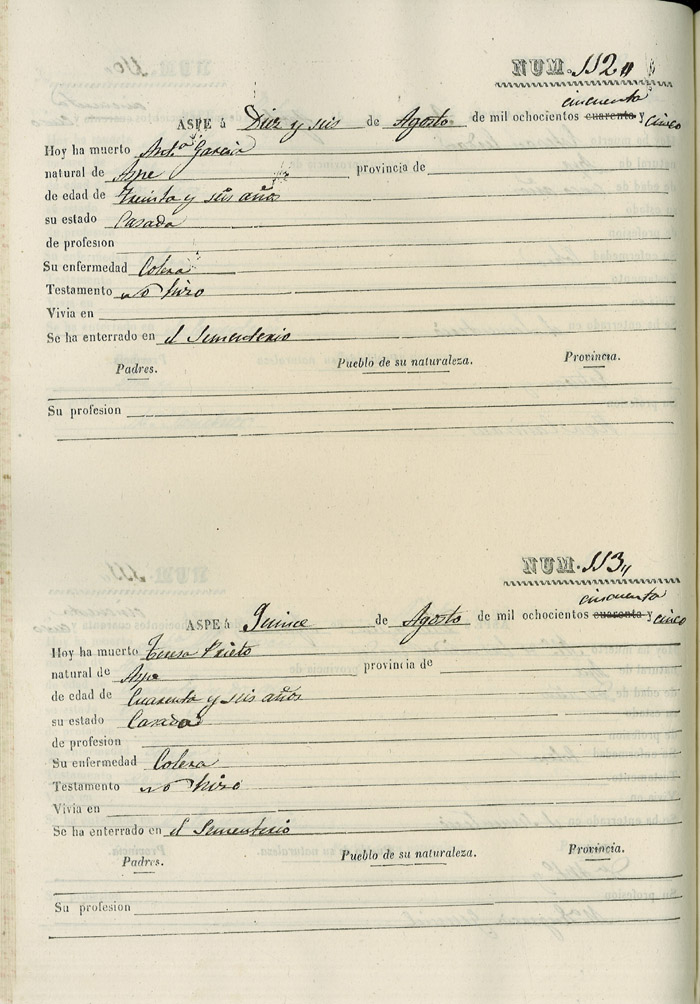 NUM. 112 "
cincuenta
ASPE á Diez y seis de Agosto de mil ochocientos cuarenta y cinco
Hoy ha muerto Ant.ª Garcia
natural de Aspe provincia de
de edad de Treinta y seis años
su estado Casada
de profesion
Su enfermedad Colera
Testamento no hizo
Vivia en
Se ha enterrado en el Sementerio
Padres. Pueblo de su naturaleza. Provincia.
Su profesion
NUM. 113 "
cincuenta
ASPE á Quince de Agosto de mil ochocientos cuarenta y cinco
Hoy ha muerto Teresa Prieto
natural de Aspe provincia de
de edad de Cuarenta y seis años
su estado Casada
de profesion
Su enfermedad Colera
Testamento no hizo
Vivia en
Se ha enterrado en el Sementerio
Padres. Pueblo de su naturaleza. Provincia.
Su profesion